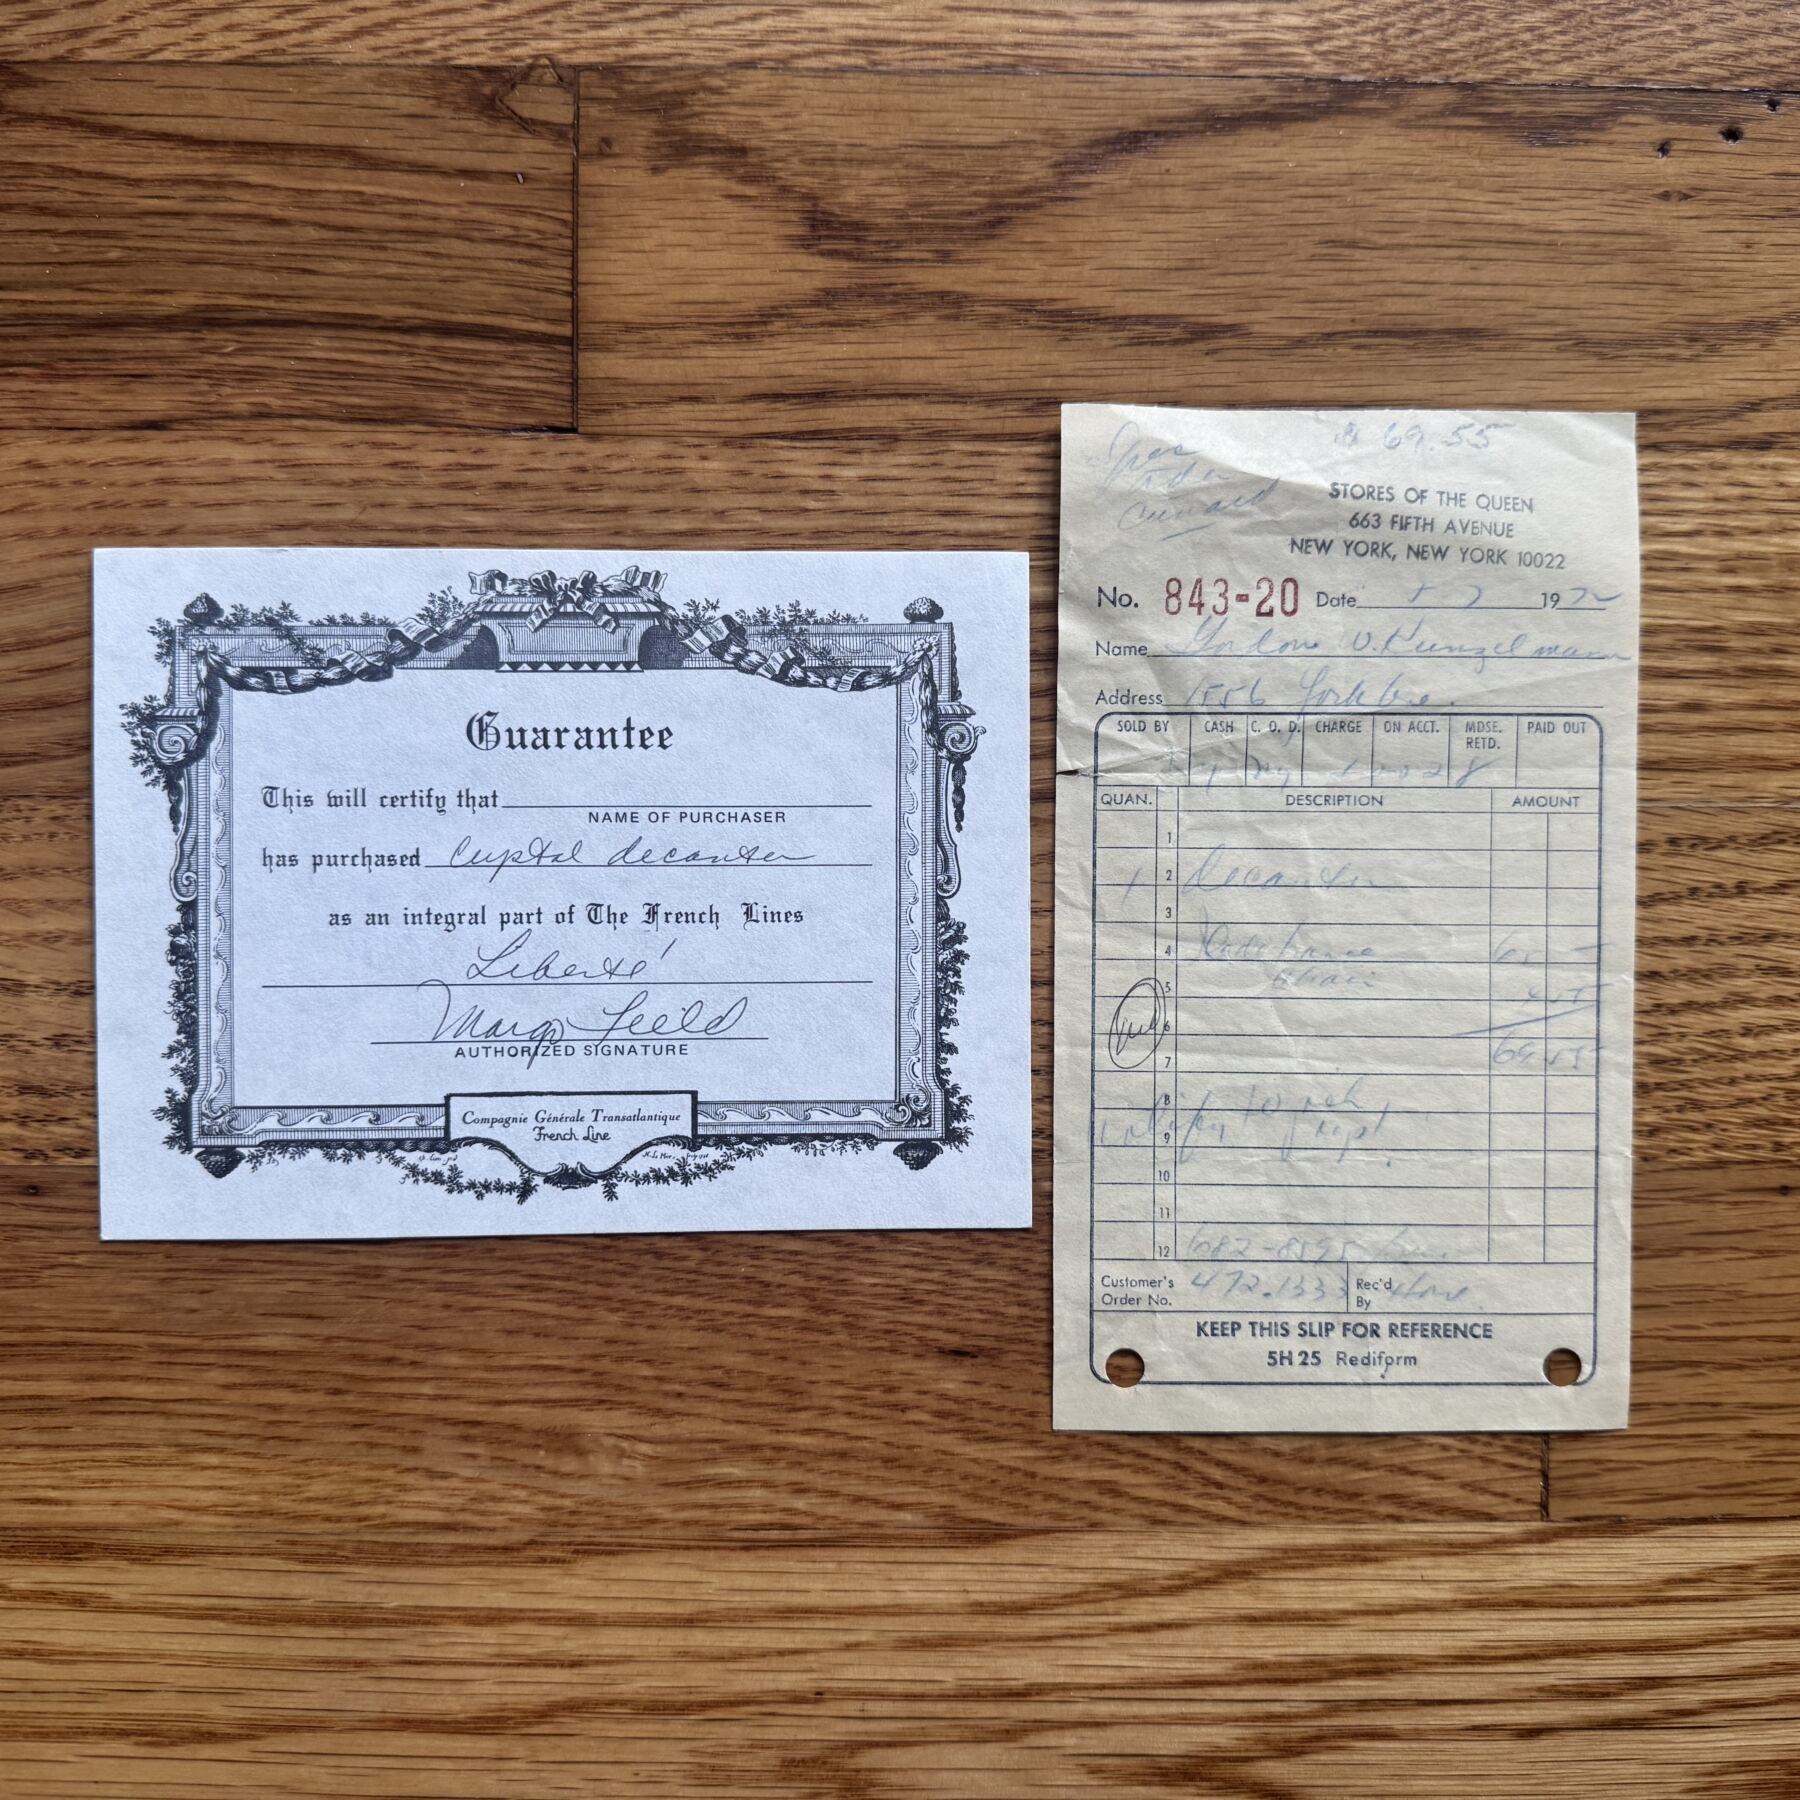 Guarantee
This will certify that
NAME OF PURCHASER
has purchased Crystal decanter
as an integral part of The French Lines
Liberté
Margo Feild
AUTHORIZED SIGNATURE
Compagnie Générale Transatlantique
French Line
$ 69.55
Cunard
STORES OF THE QUEEN
663 FIFTH AVENUE
NEW YORK, NEW YORK 10022
No. 843-20 Date 19 72
Name Gordon V. Kunzelmann
Address 1556 York Ave.
SOLD BY CASH C. O. D. CHARGE ON ACCT. MDSE. RETD. PAID OUT
QUAN. DESCRIPTION AMOUNT
1
1 2 Decanter
3
4
5 chair
6
7 69.55
8
9
10
11
12 682-8595
Customer's Order No. 472.1333 Rec'd By
KEEP THIS SLIP FOR REFERENCE
5H 25 Rediform